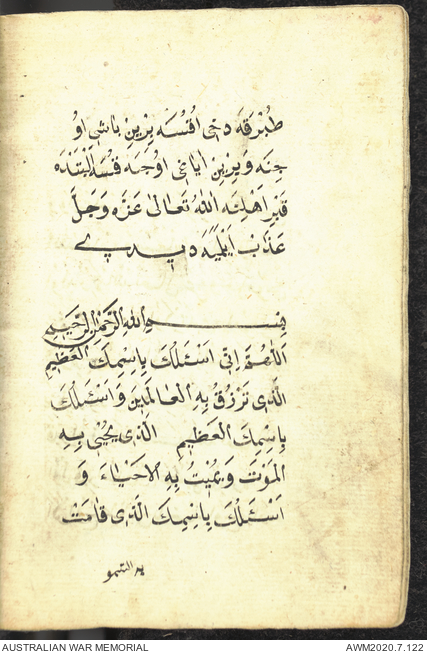 طُبْرَقَه دَخِى اُفْسَه بِرْ يِنِ بَاشِى اُو
جِنَه وَ بِرْ يِنِ اَيَاغِى اُوجِنَه قُسَه اَلْتِنْدَه
قَبِرِ اَهْلِنَه اَللهُ تَعَالىٰ عَزَّه وَجَلَّ
عَذَبْ اَيْلَمَيَه دِيدِى
بِسْمِ اللهِ الرَّحْمٰنِ الرَّحِيمِ
اَللّٰهُمَّ اِنِّى اَسْئَلُكَ بِاِسْمِكَ الْعَظِيمِ
الَّذِى تَرْزُقُ بِهِ الْعَالَمِينَ وَ اَسْئَلُكَ
بِاِسْمِكَ الْعَظِيمِ الَّذِى يُحْيِى بِهِ
الْمَوْتَ وَ يُمِيتُ بِهِ الْاَحْيَاءَ وَ
اَسْئَلُكَ بِاِسْمِكَ الَّذِى قَامَتْ
به السمو
AUSTRALIAN WAR MEMORIAL AWM2020.7.122